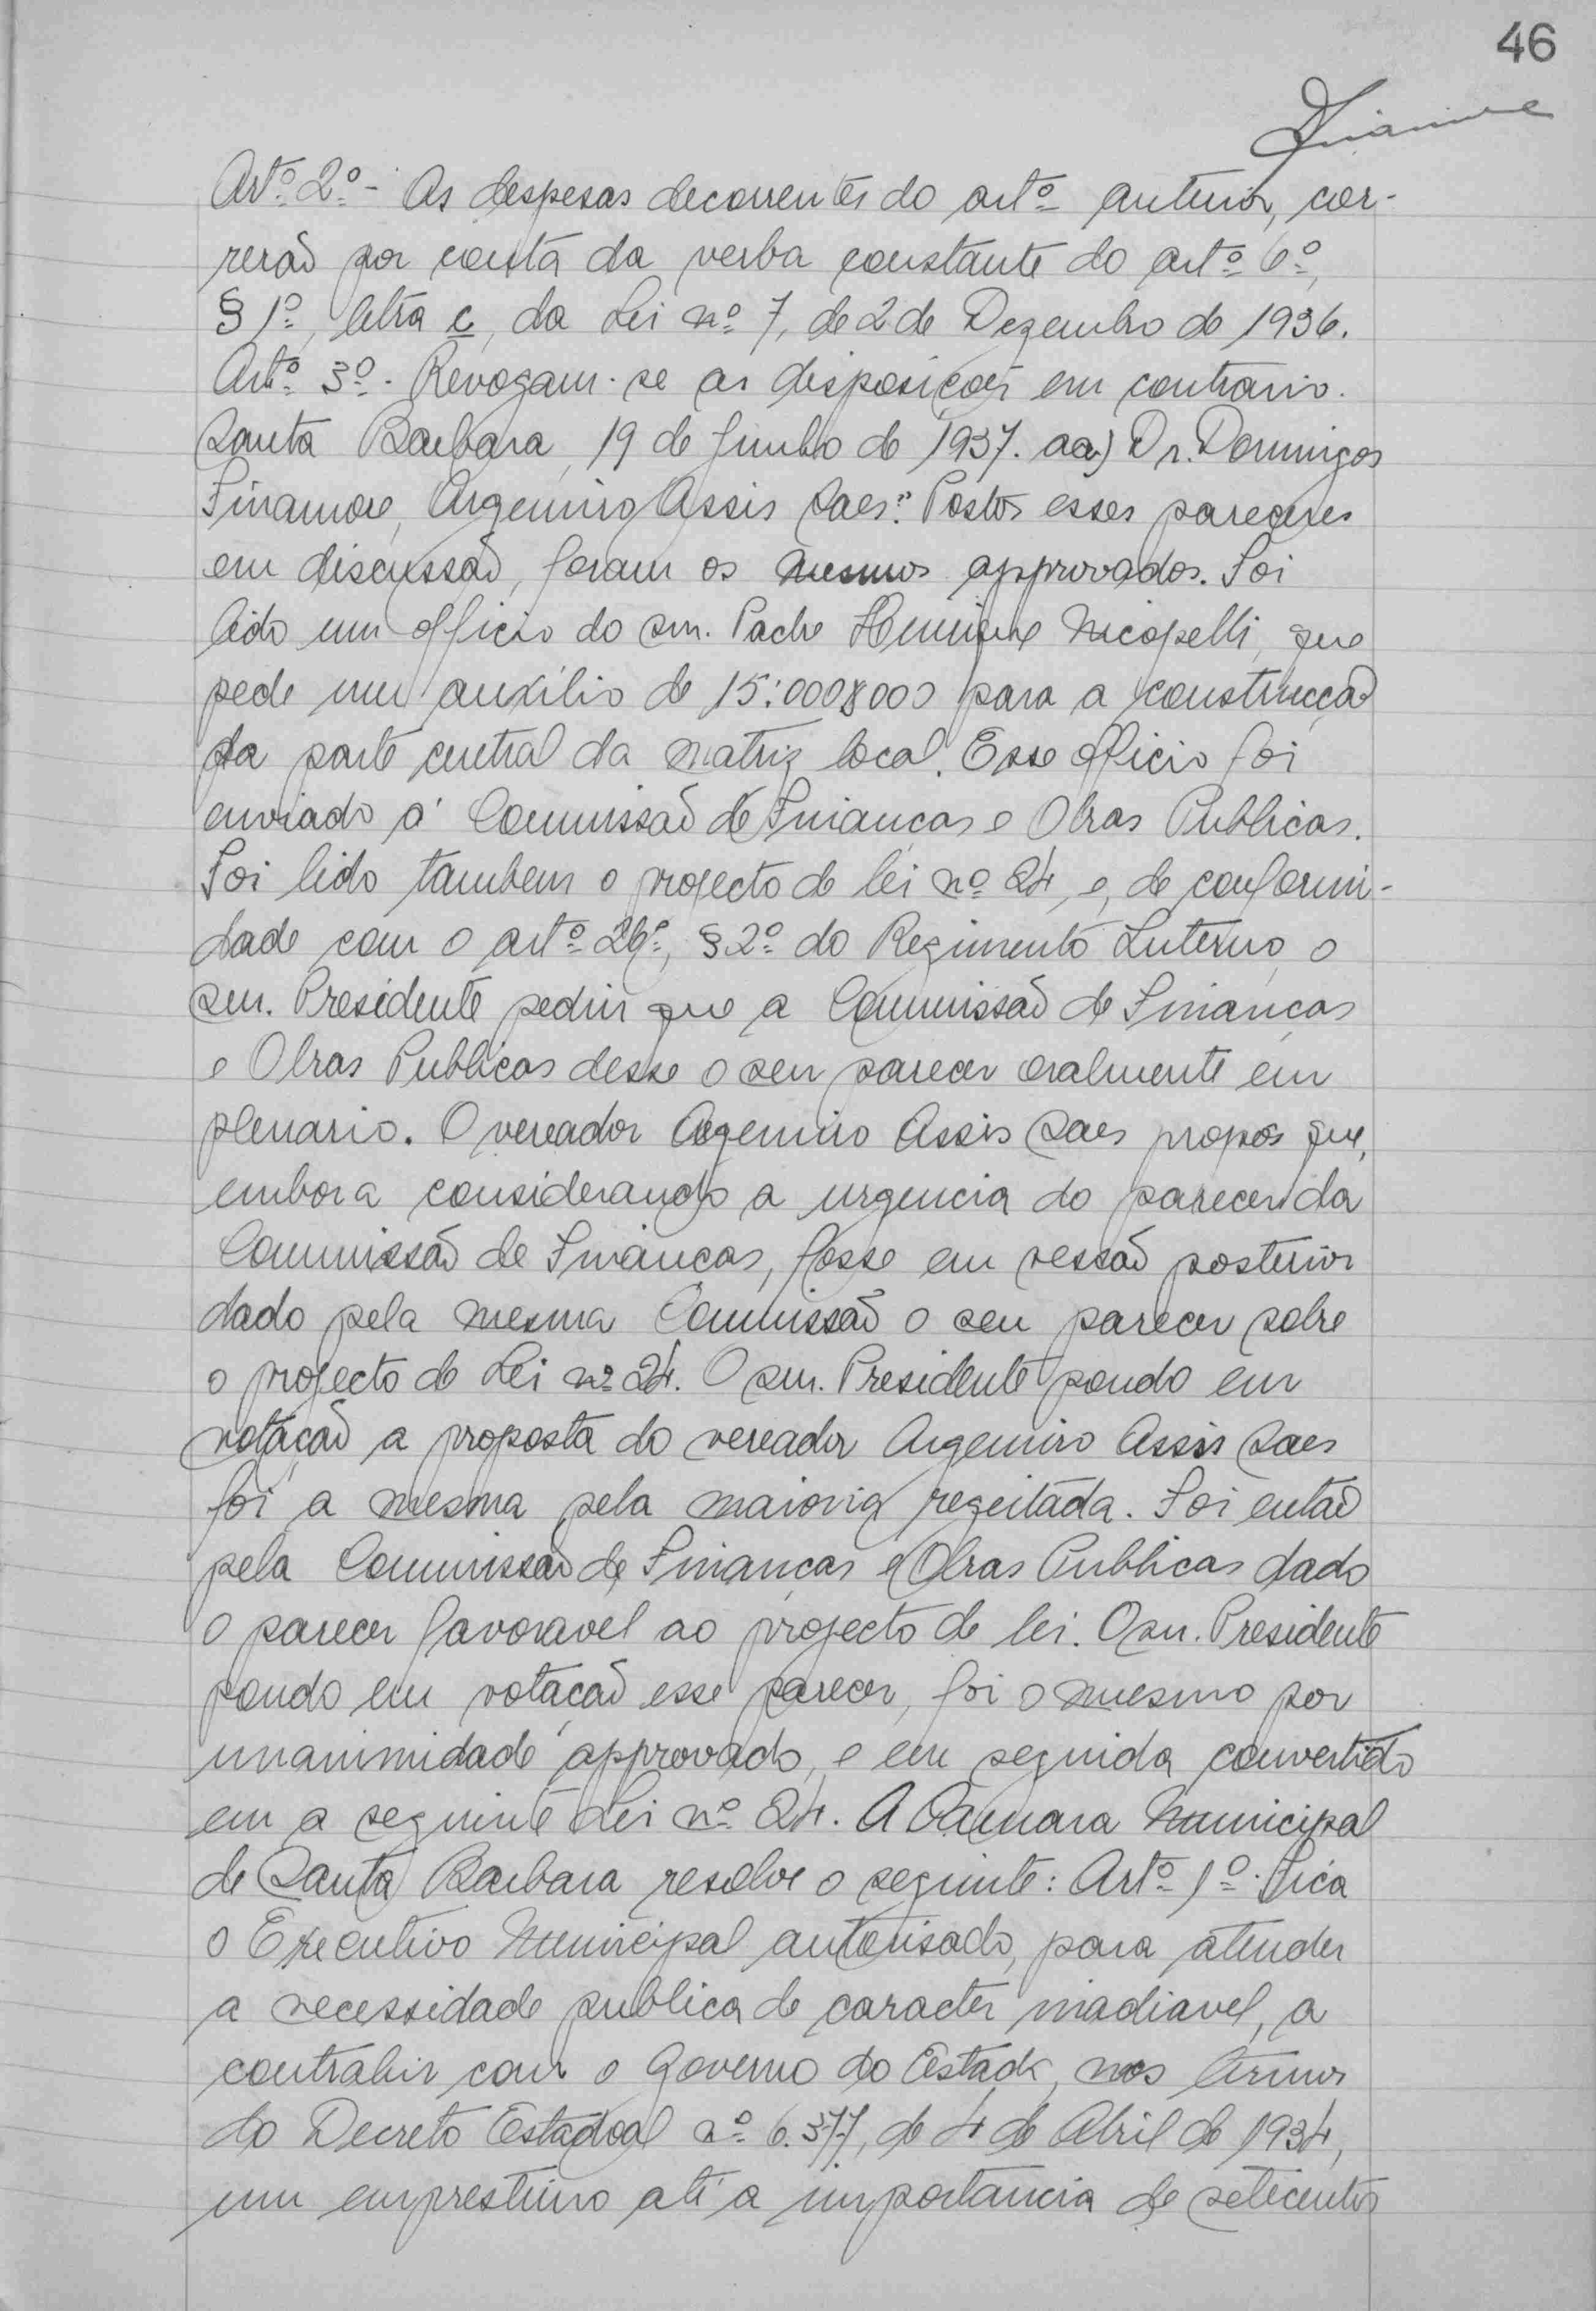 46
Artº 2º - As despesas decorrentes do artº anterior, cor-
rerão por conta da verba constante do artº 6º,
§ 1º, letra c, da Lei nº 7, de 2 de Dezembro de 1936.
Artº 3º - Revogam-se as disposições em contrario.
Santa Barbara, 19 de Junho de 1937. aa) Dr. Domingos
Finamore, Argemiro Assis Saes." Postos esses pareceres
em discussão, foram os mesmos approvados. Foi
lido um officio do snr. Padre Henrique Nicopelli, que
pede um auxilio de 15:000$000 para a construcção
da parte central da matriz local. Esse officio foi
enviado á Commissão de Finanças e Obras Publicas.
Foi lido tambem o projecto de lei nº 24, e, de conformi-
dade com o artº 26º, § 2º do Regimento Interno, o
snr. Presidente pediu que a Commissão de Finanças
e Obras Publicas desse o seu parecer oralmente em
plenario. O vereador Argemiro Assis Saes propos que,
embora considerando a urgencia do parecer da
Commissão de Finanças, fosse em sessão posterior
dado pela mesma Commissão o seu parecer sobre
o projecto de Lei nº 24. O snr. Presidente pondo em
votação a proposta do vereador Argemiro Assis Saes
foi a mesma pela maioria regeitada. Foi então
pela Commissão de Finanças e Obras Publicas dado
o parecer favoravel ao projecto de lei. O snr. Presidente
pondo em votação esse parecer, foi o mesmo por
unanimidade approvado, e em seguida convertido
em a seguinte Lei nº 24. A Camara Municipal
de Santa Barbara resolve o seguinte: Artº 1º - Fica
o Executivo Municipal autorisado, para atender
a necessidade publica de caracter inadiavel, a
contrahir com o Governo do Estado, nos termos
do Decreto Estadoal nº 6.377, de 4 de Abril de 1934,
um emprestimo até a importancia de setecentos